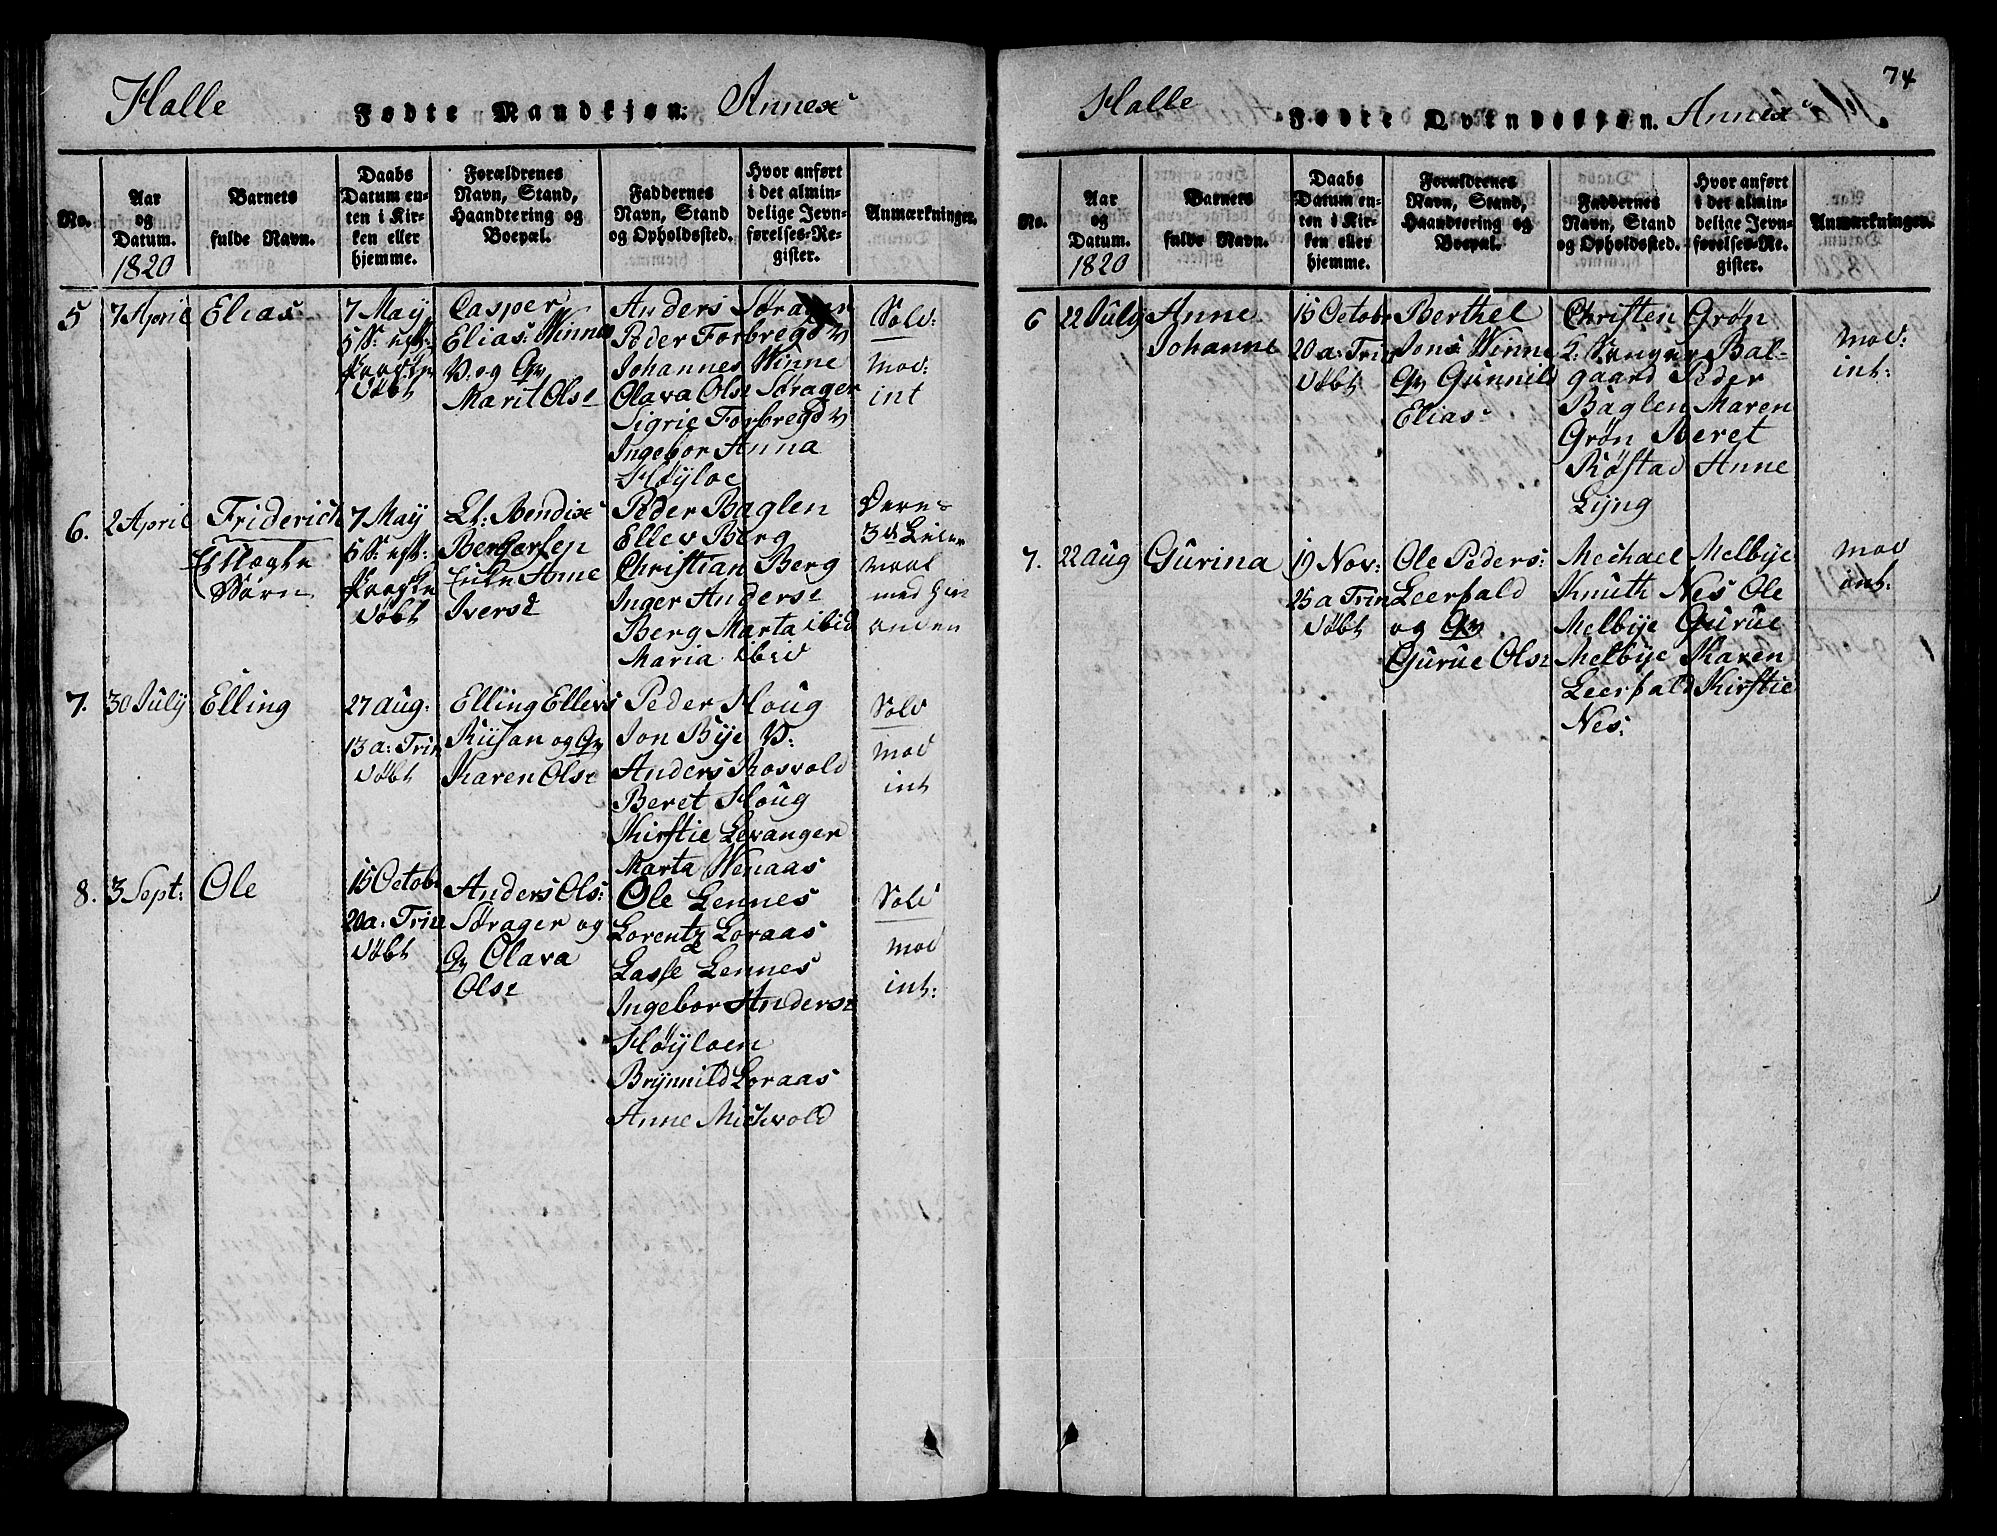 Halle
Fødte Mandkjøn:
Annex
No.
Aar
og
Datum.
1820
Barnets
fulde Navn.
Daabs
Datum en-
ten i Kir-
ken eller
hjemme.
Forældrenes
Navn, Stand,
Haandtering og
Boepæl.
Faddernes
Navn, Stand
og Opholdssted.
Hvor anført
i det almin-
delige Jevn-
førelses-Re-
gister.
Anmærkninger.
5
7 April
Elias
7 May
døbt
Casper
Elias: Winne
og Qv
Marit Ols
Anders Sørager
Peder Forbregd
Johannes Winne
Olava Ols Sørager
Sigrie Forbregd
Ingebor Anna
Høyloe
mod:
int
6.
2 April
Friderich
7 May
døbt
Lt: Bendix
Anne
Ivers
Peder Baglen
Ellev Berg
Christian Berg
Inger Anders
Berg Marta ibid
Maria ibid
7.
30 July
Elling
27 aug:
13 a: Trin
døbt
Elling Ellevs
og Qv
Karen Ols
Peder Houg
Jon Bye
Anders Rosvold
Beret Houg
Kirstie Levanger
Marta Wenaas
mod
int
8.
3 Sept:
Ole
15 Octobr
20 a: Trin
døbt
Anders Ols:
Sørager og
Qv Olava
Ols
Ole Lennes
Lorentz Loraas
Lasse Lennes
Ingebor Anders
Høyloen
Brynnild Loraas
Anne Michvold
mod
int:
74
Halle
Fødte Qvindekjøn.
Annex
No.
Aar
og
Datum.
1820
Barnets
fulde Navn.
Daabs
Datum en-
ten i Kir-
ken eller
hjemme.
Forældrenes
Navn, Stand,
Haandtering og
Boepæl.
Faddernes
Navn, Stand
og Opholdssted.
Hvor anført
i det almin-
delige Jevn-
førelses-Re-
gister.
Anmærkninger.
6
22 July
Anne
Johanne
15 Octobr
20 a: Trin
døbt
Berthel
Jons Winne
Qv Gunnild
Elias
Christen Grøn
Bal-
gaard Peder
Baglen Maren
Grøn Beret
Røstad Anne
Lyng
mod:
int:
7.
22 aug
Gurina
19 Nov:
25 a Trin
døbt
Ole Peders:
Leerfald
og Qv
Gurue Ols
Mechael Melbye
Knuth Nes Ole
Melbye Gurue
Melbye Karen
Leerfald Kirstie
Nes:
mod
int: